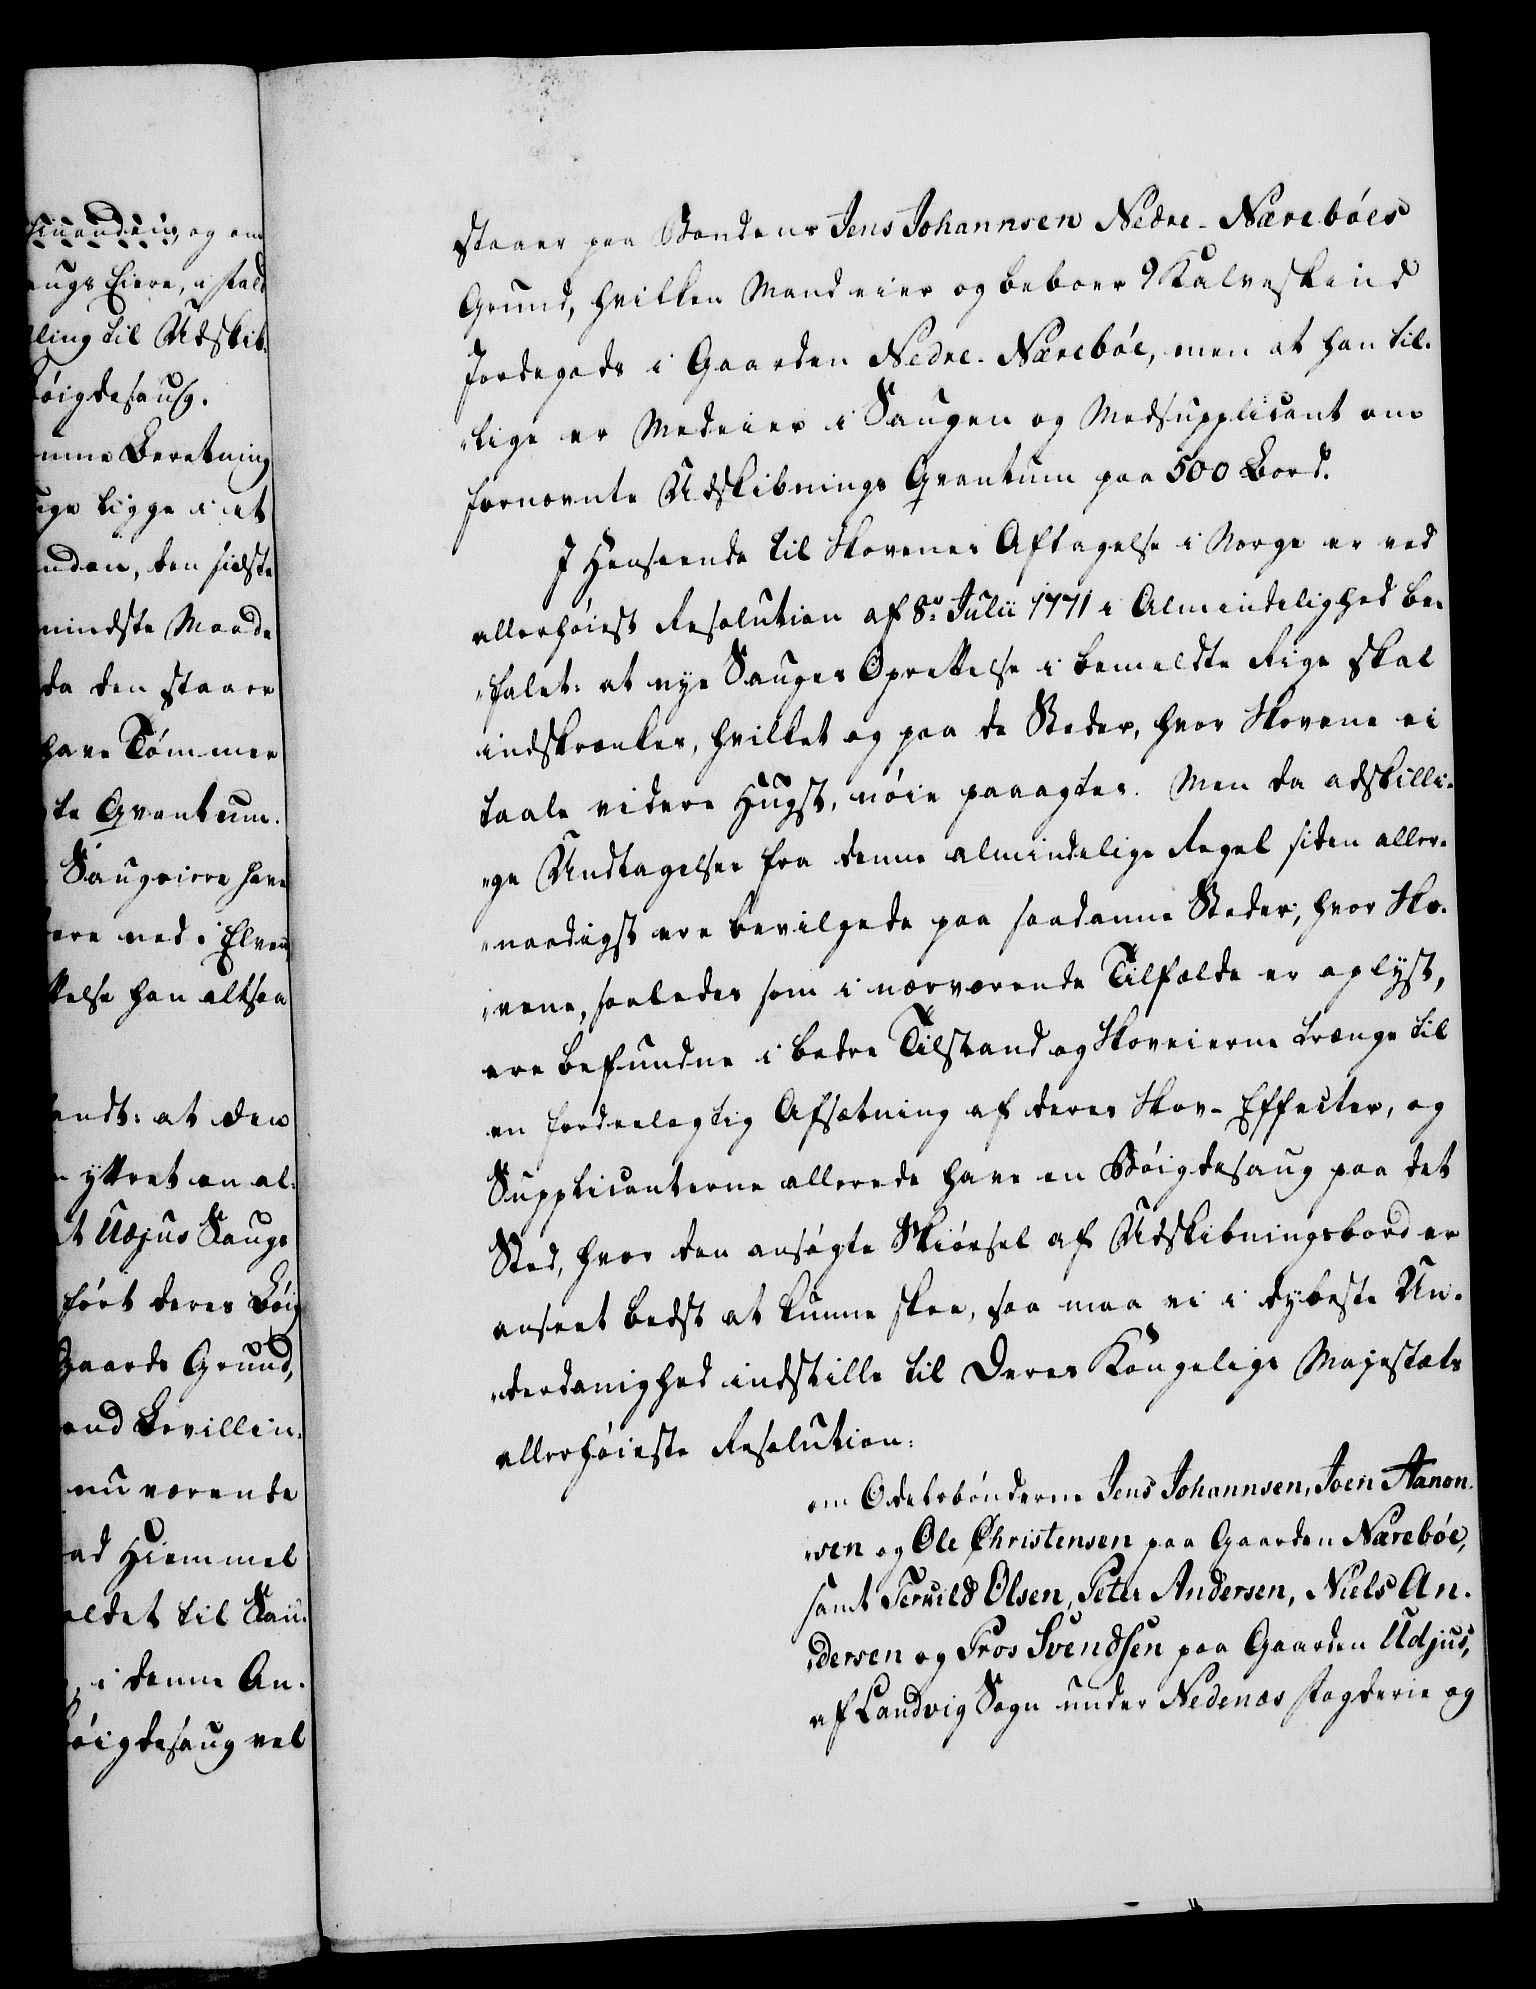 hinanden, og om
augs Eiere, i fald
ling til Udskib„
Bøigdesaug.
mme Beretning
uge ligge i et
nden, den sidste
mindste Maade
da den staaer
have Tømmer
te Qvantum.
Saugeiere have
ere ned i Elven
kelse han altsaa
endt: at den
yttret en al„
t Udjus Saugs
ført deres Bøig
Gaards Grund,
and Bevillin„
nu værende
ad Hiemmel
ldet til Sau„
, i denne An„
Bøigdesaug vel
staaer paa Bondens Jens Johannsen Nedre-Nærebøes
Grund, hvilken Mand eier og beboer 9 Kalveskind
Jordegods i Gaarden Nedre-Nærebøe, men at han til„
„lige er Medeier i Saugen og Medsupplicant om
fornevnte Udskibnings Qvantum paa 500 Bord.
I Henseende til Skovenes Aftagelse i Norge er ved
allerhøiest Resolution af 8de Julii 1771 i Almindelighed be„
„falet: at nye Sauges Oprettelse i bemeldte Rige skal
indskrænkes, hvilket og paa de Steder, hvor Skovene ei
taale videre Hugst, nøie paaagtes. Men da adskilli„
„ge Undtagelser fra denne almindelige Regel siden aller„
„naadigst ere bevilgede paa saadanne Steder, hvor Sko„
„vene, saaledes som i nærværende Tilfælde er oplyst,
ere befundne i bedre Tilstand og Skoveierne trænge til
en fordeelagtig Afsætning af deres Skov-Effecter, og
Supplicanterne allerede have en Bøigdesaug paa det
Sted, hvor den ansøgte Skiørsel af Udskibningsbord er
anseet bedst at kunne skee, saa maa vi i dybeste Un„
„derdanighed indstille til Deres Kongelige Majestæts
allerhøieste Resolution:
om Odelsbønderne Jens Johannsen, Joen Aanon„
„sen og Ole Christensen paa Gaarden Nærebøe,
samt Terkild Olsen, Peter Andersen, Niels An„
„dersen og Tros Svendsen paa Gaarden Udjus,
af Landvig Sogn under Nedenæs Fogderie og